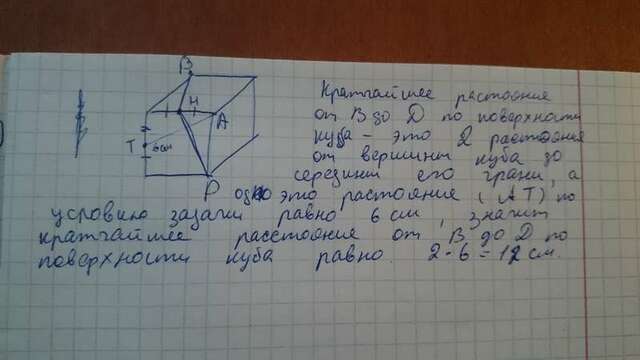 B
H
T
6 см
A
D
Кратчайшее растояние
от B до D по поверхности
куба – это 2 растояния
от вершин куба до
середины его грани, а
одно это растояние (AT) по
условию задачи равно 6 см, значит
кратчайшее расстояние от B до D по
поверхности куба равно 2·6=12 см